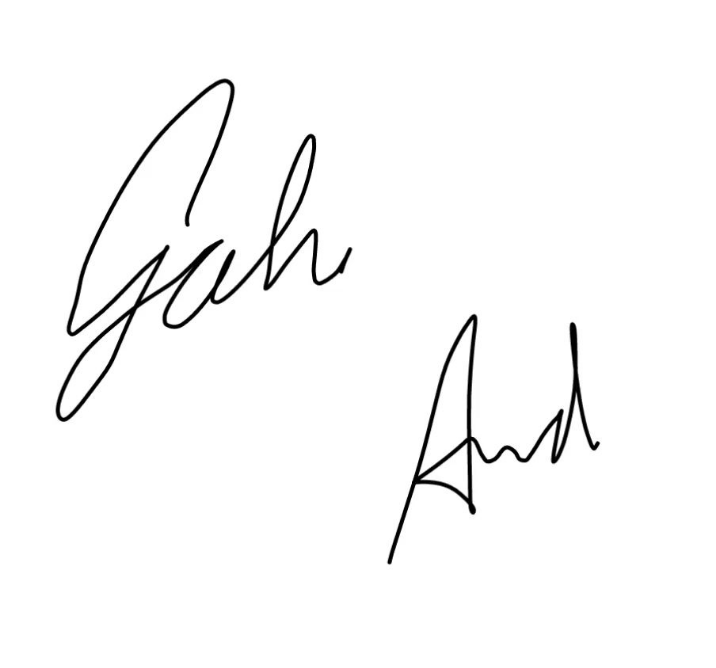 Gah
And